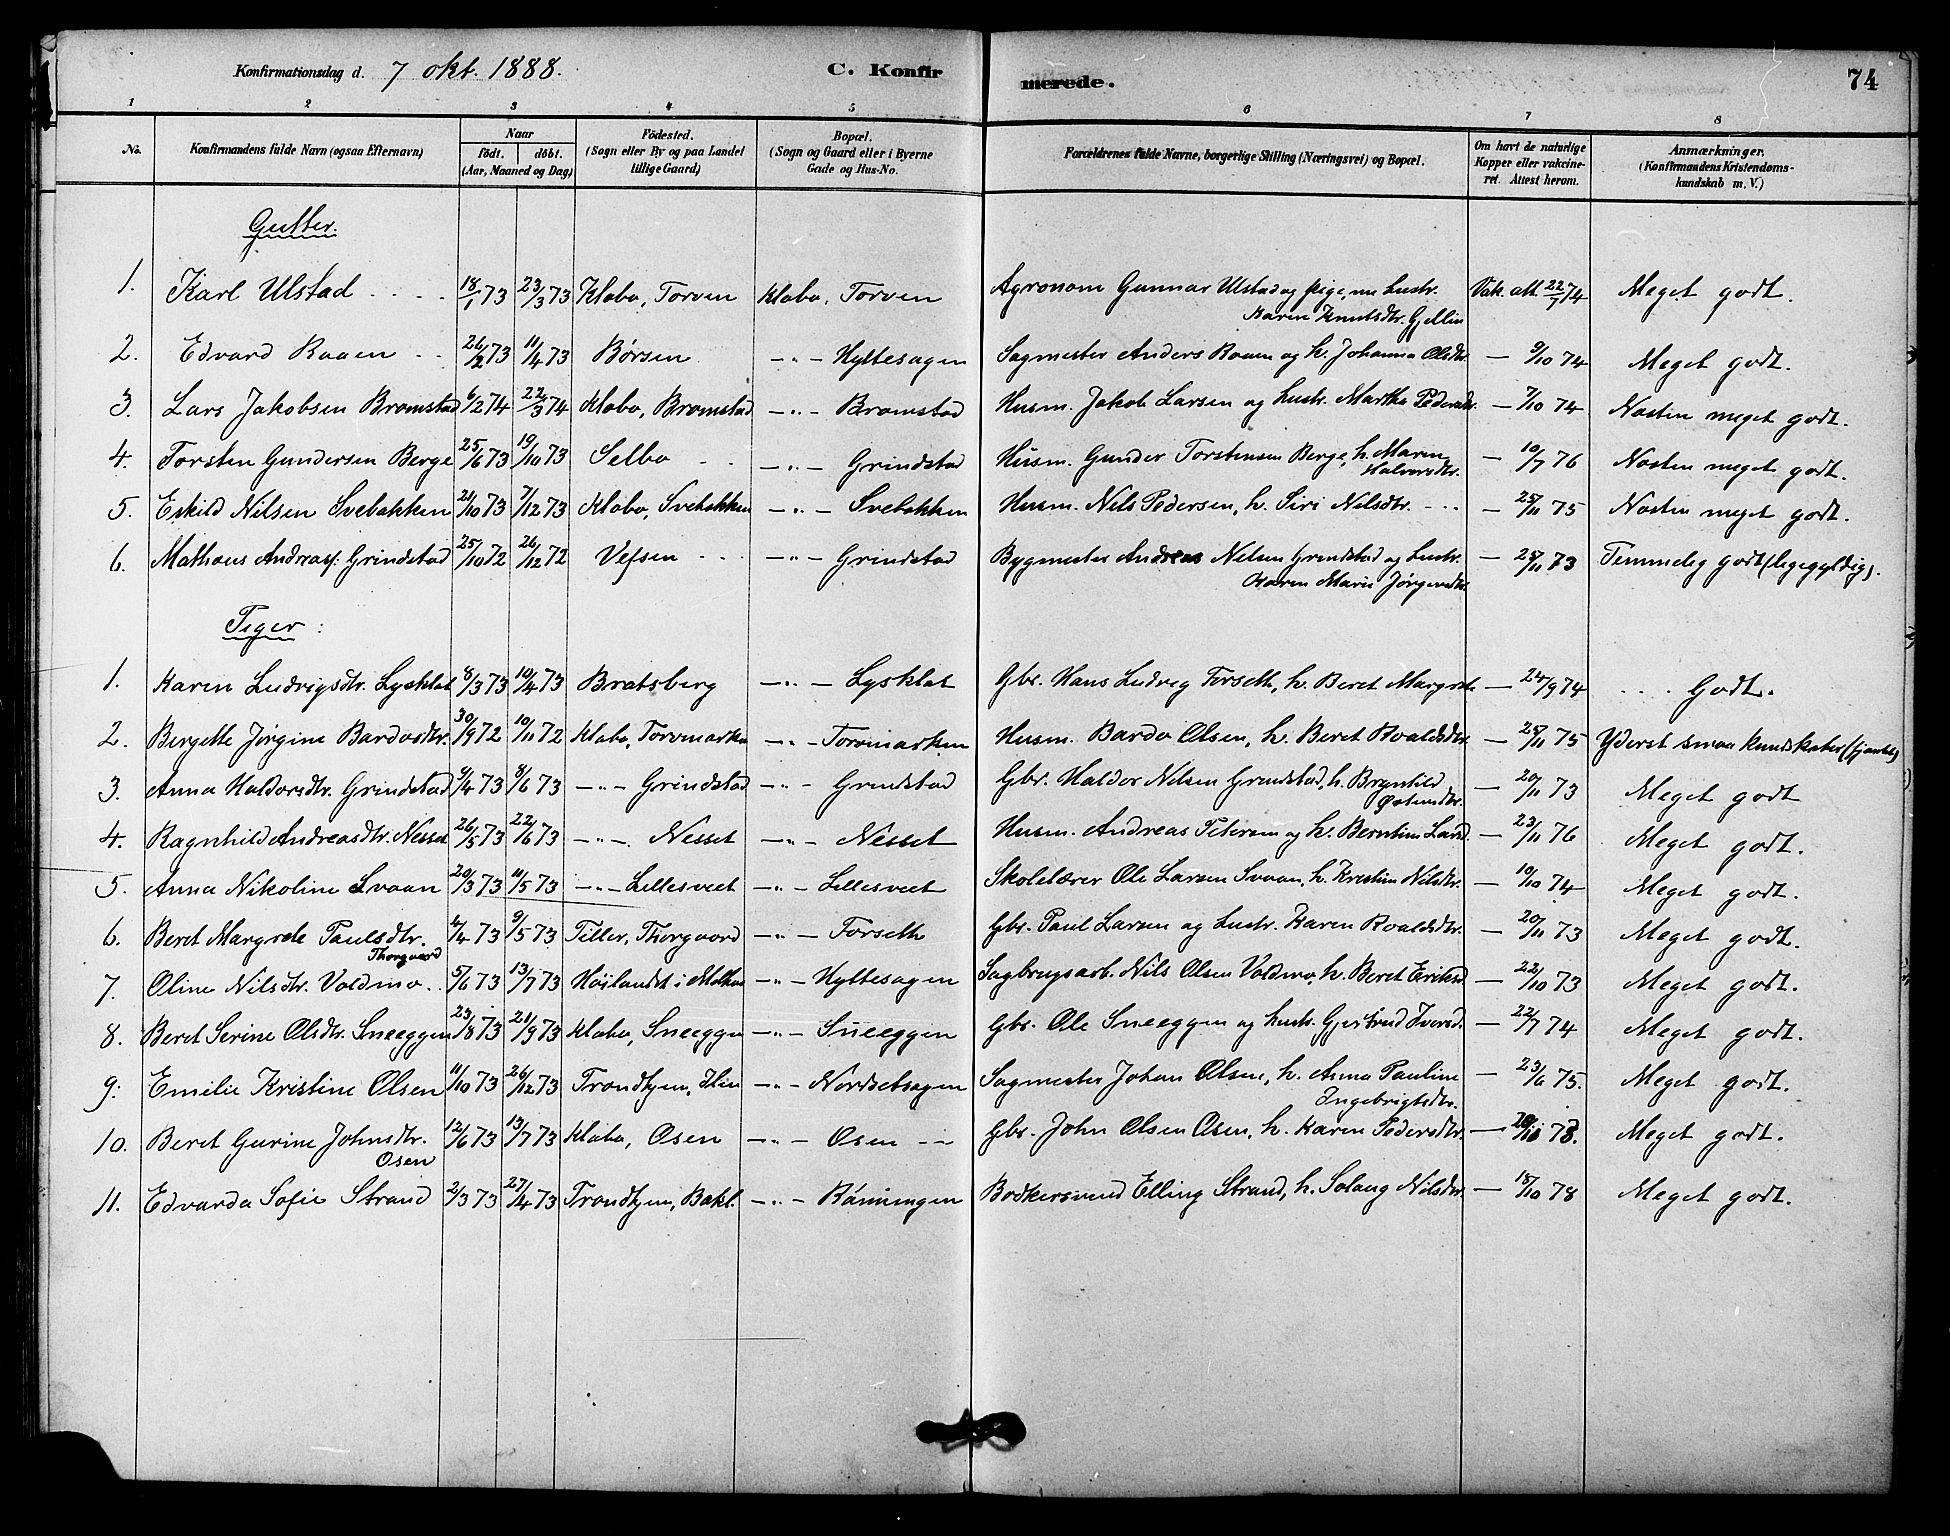 Konfirmationsdag d. 7 okt. 1888. C. Konfirmerede. 74
1 2 3 4 5 6 7 8
No. Konfirmandens fulde Navn (ogsaa Efternavn) Naar født. døbt. (Aar, Maaned og Dag) Fødested. (Sogn eller By og paa Landet tillige Gaard) Bopæl. (Sogn og Gaard eller i Byerne Gade og Hus-No. Forældrenes fulde Navne, borgerlige Stilling (Næringsvei) og Bopæl. Om havt de naturlige Kopper eller vakcineret. Attest herom. Anmærkninger. (Konfirmandens Kristendomskundskab m. V.)
Gutter.
1. Karl Ulstad 18/1 73 23/3 73 Klæbo, Torven Klæbo, Torven Agronom Gunnar Ulstad og pige, nu hustr. Karen Knutsdtr. Gjellin Vak. att. 22/7 74 Meget godt.
2. Edvard Raaen 26/2 73 11/4 73 Børsen — " — Hyttesagen Sagmester Anders Raaen og h. Johanna Olsdtr. — 9/10 74 Meget godt.
3. Lars Jakobsen Bromstad 6/2 74 22/3 74 Klæbo, Bromstad — " — Bromstad Husm. Jakob Larsen og hustr. Martha Pedersdtr. — 7/10 74 Næsten meget godt.
4. Torsten Gundersen Berge 25/6 73 19/10 73 Selbo — " — Grindstad Husm. Gunder Torstensen Berge, h. Maren Halvorsdtr. — 10/7 76 Næsten meget godt.
5. Eskild Nilsen Svebakken 21/10 73 7/12 73 Klæbo, Svebakken — " — Svebakken Husm. Nils Pedersen, h. Siri Nilsdtr. — 25/11 75 Næsten meget godt.
6. Mathæus Andreas. Grindstad 25/10 72 26/12 72 Vefsen — " — Grindstad Bygmester Andreas Nilsen Grindstad og hustr. Karen Marie Jørgensdtr. — 25/11 73 Temmelig godt (ligegyldig).
Piger:
1. Karen Ludvigsdtr. Lysklæt 8/3 73 10/4 73 Bratsberg — " — Lysklæt Gbr. Hans Ludvig Forseth, h. Beret Margrete — 24/9 74 Godt.
2. Bergette Jørgine Bardosdtr. 30/9 72 10/11 72 Klæbo, Torvmarken — " — Torvmarken Husm. Bardo Olsen, h. Beret Roaldsdtr. — 25/11 75 Yderst smaa kundskaber
3. Anna Haldorsdtr. Grindstad 9/4 73 8/6 73 — " — Grindstad — " — Grindstad Gbr. Haldor Nilsen Grindstad, h. Brynhild Østensdtr. — 20/11 73 Meget godt
4. Ragnhild Andreasdtr. Nesset 26/5 73 22/6 73 — " — Nesset — " — Nesset Husm. Andreas Petersen og h. Berntine Larsd. — 23/11 76 Meget godt.
5. Anna Nikoline Svaan 20/3 73 11/5 73 — " — Lillesveet — " — Lillesveet Skolelærer Ole Larsen Svaan, h. Kristine Nilsdtr. — 10/10 74 Meget godt.
6. Beret Margrete Paulsdtr. Thorgaard 4/4 73 9/5 73 Tiller, Thorgaard — " — Forseth Gbr. Paul Larsen og hustr. Karen Roaldsdtr. — 20/11 73 Meget godt.
7. Oline Nilsdtr. Voldmo 5/6 73 13/7 73 Høilandet i — " — Hyttesagen Sagbrugsarb. Nils Olsen Voldmo, h. Beret Eriksd. — 22/10 73 Meget godt.
8. Beret Serine Olsdtr. Sneeggen 23/8 73 21/9 73 Klæbo, Sneeggen — " — Sneeggen Gbr. Ole Sneeggen og hustr. Gjertrud Iversd. — 22/7 74 Meget godt.
9. Emilie Kristine Olsen 11/10 73 26/12 73 Trondhjem, Ilen — " — Nordsetsagen Sagmester Johan Olsen, h. Anna Pauline Ingebrigtsdtr. — 23/6 75. Meget godt.
10. Beret Gurine Johnsdtr. Osen 12/6 73 13/7 73 Klæbo, Osen — " — Osen Gbr. John Olsen Osen, h. Karen Pedersdtr. — 78. Meget godt.
11. Edvarda Sofie Strand 2/3 73 27/4 73 Trondhjem, Bakl. — " — Rønningen Bødkersvend Elling Strand, h. Solaug Nilsdtr. — 18/10 78 Meget godt.